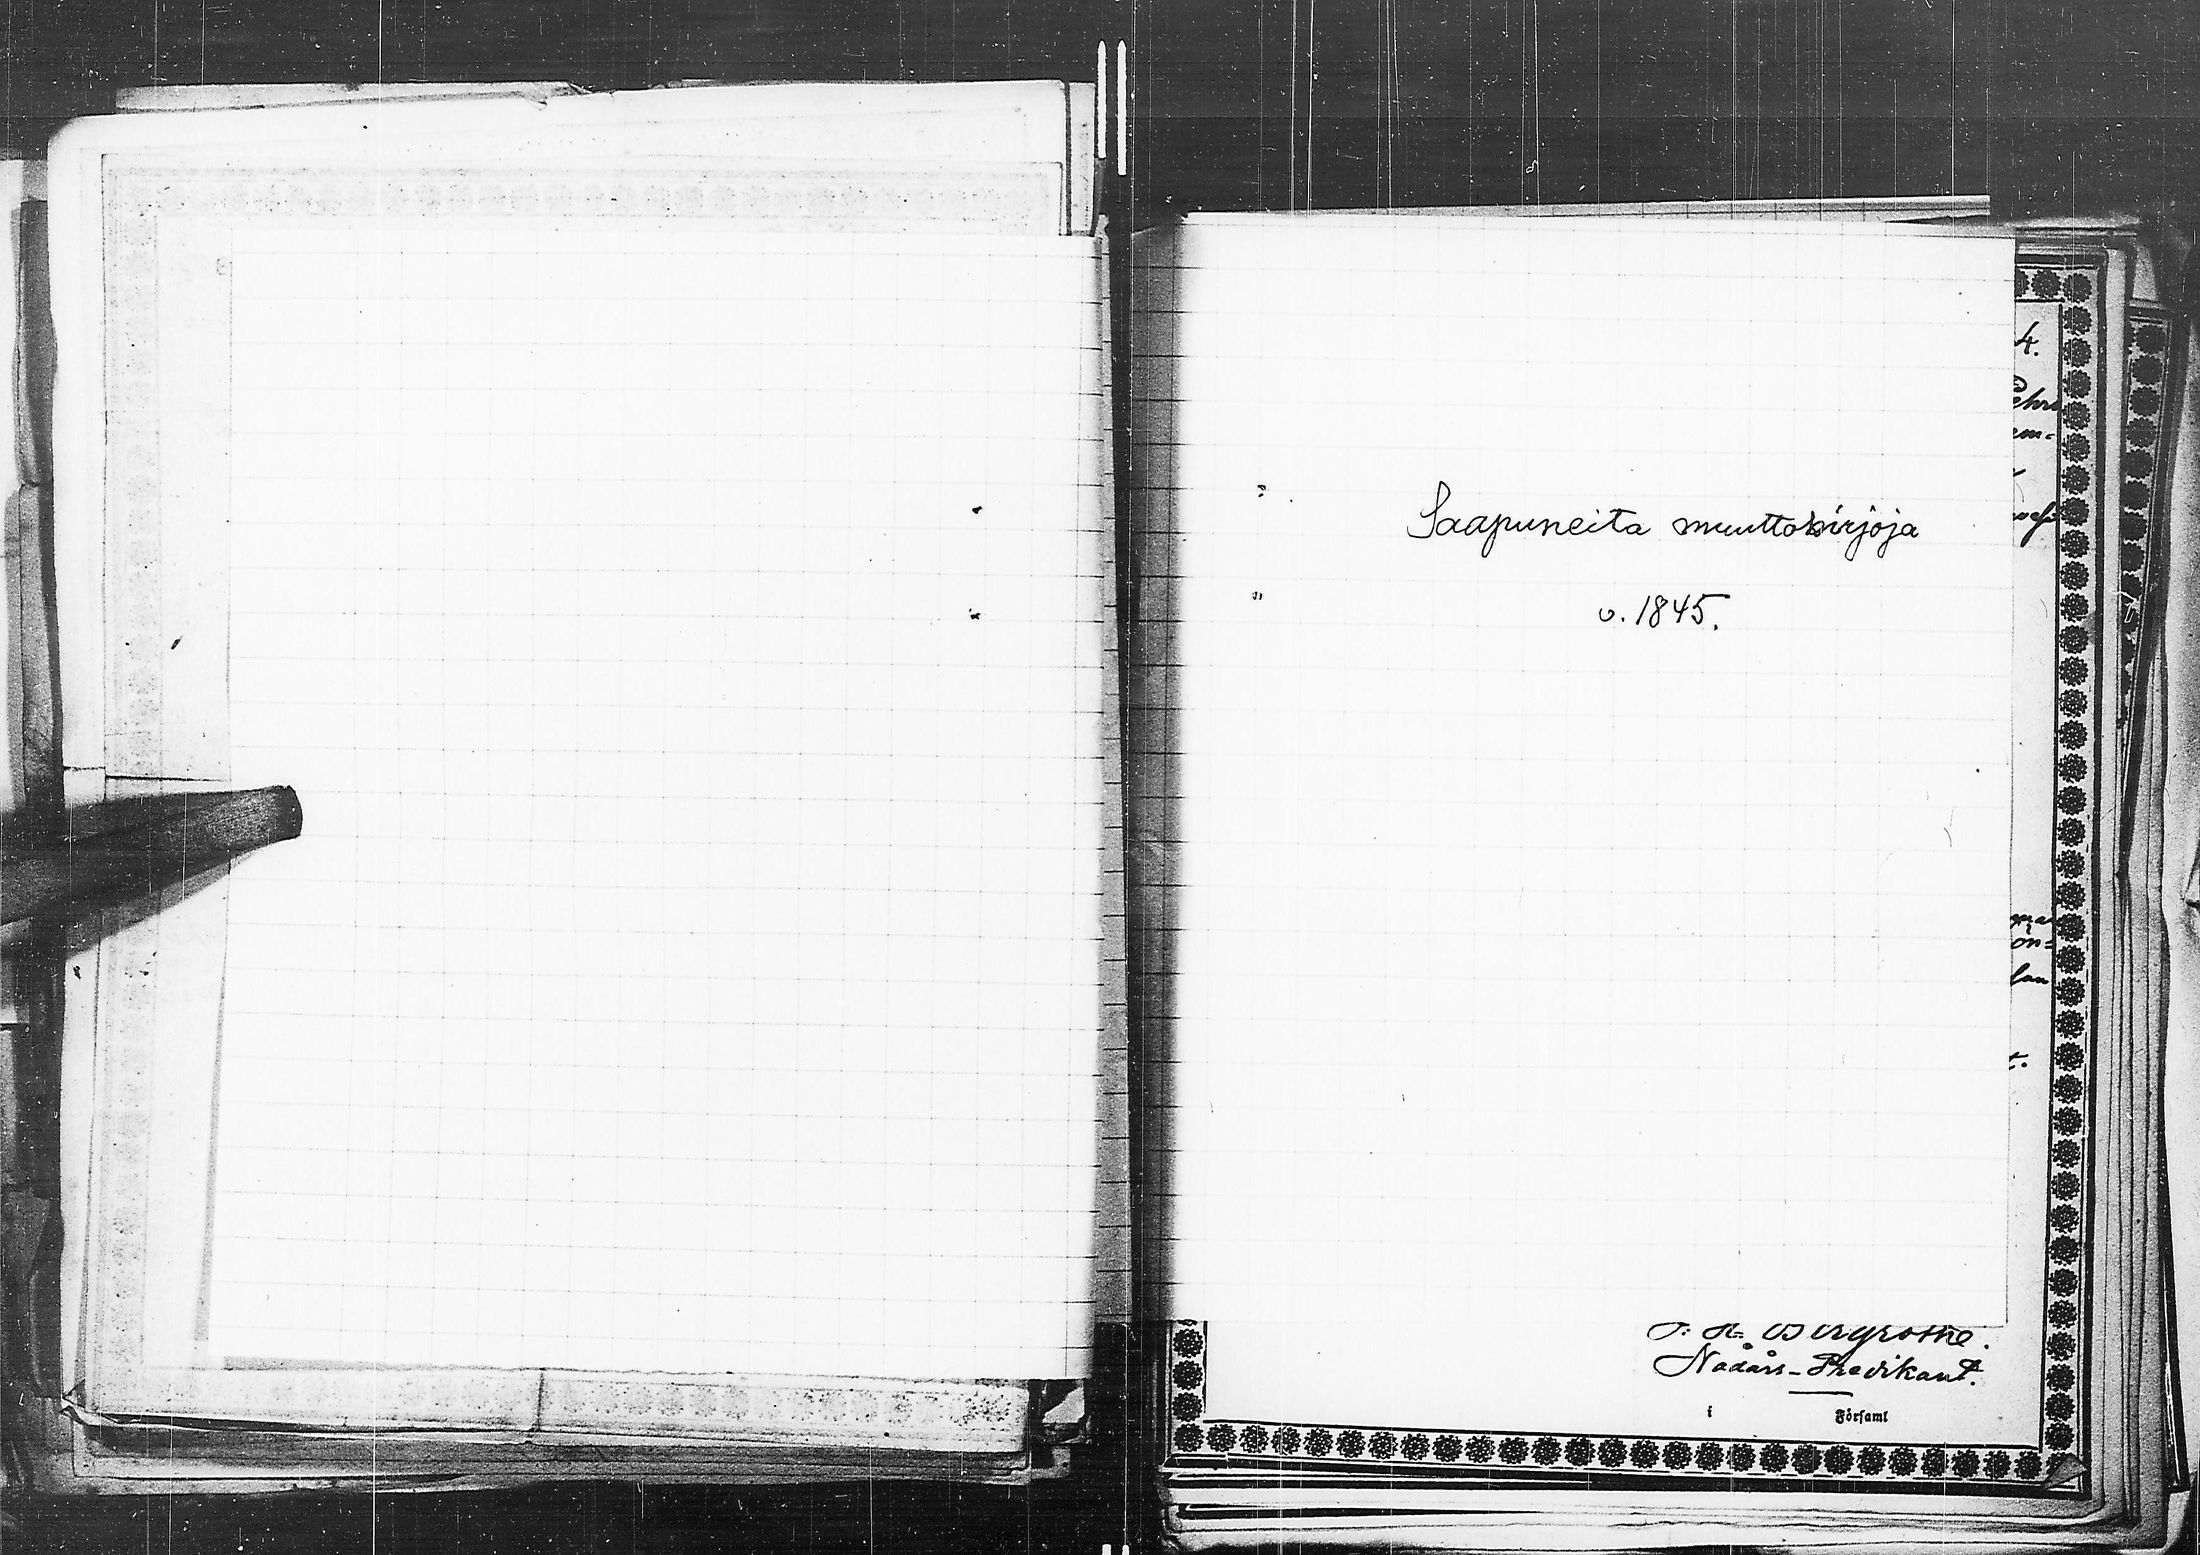 Saapuneita muuttokirjoja
v. 1845.
4.
em-
on=
t.
Nådårs-Predikant.
i Församl